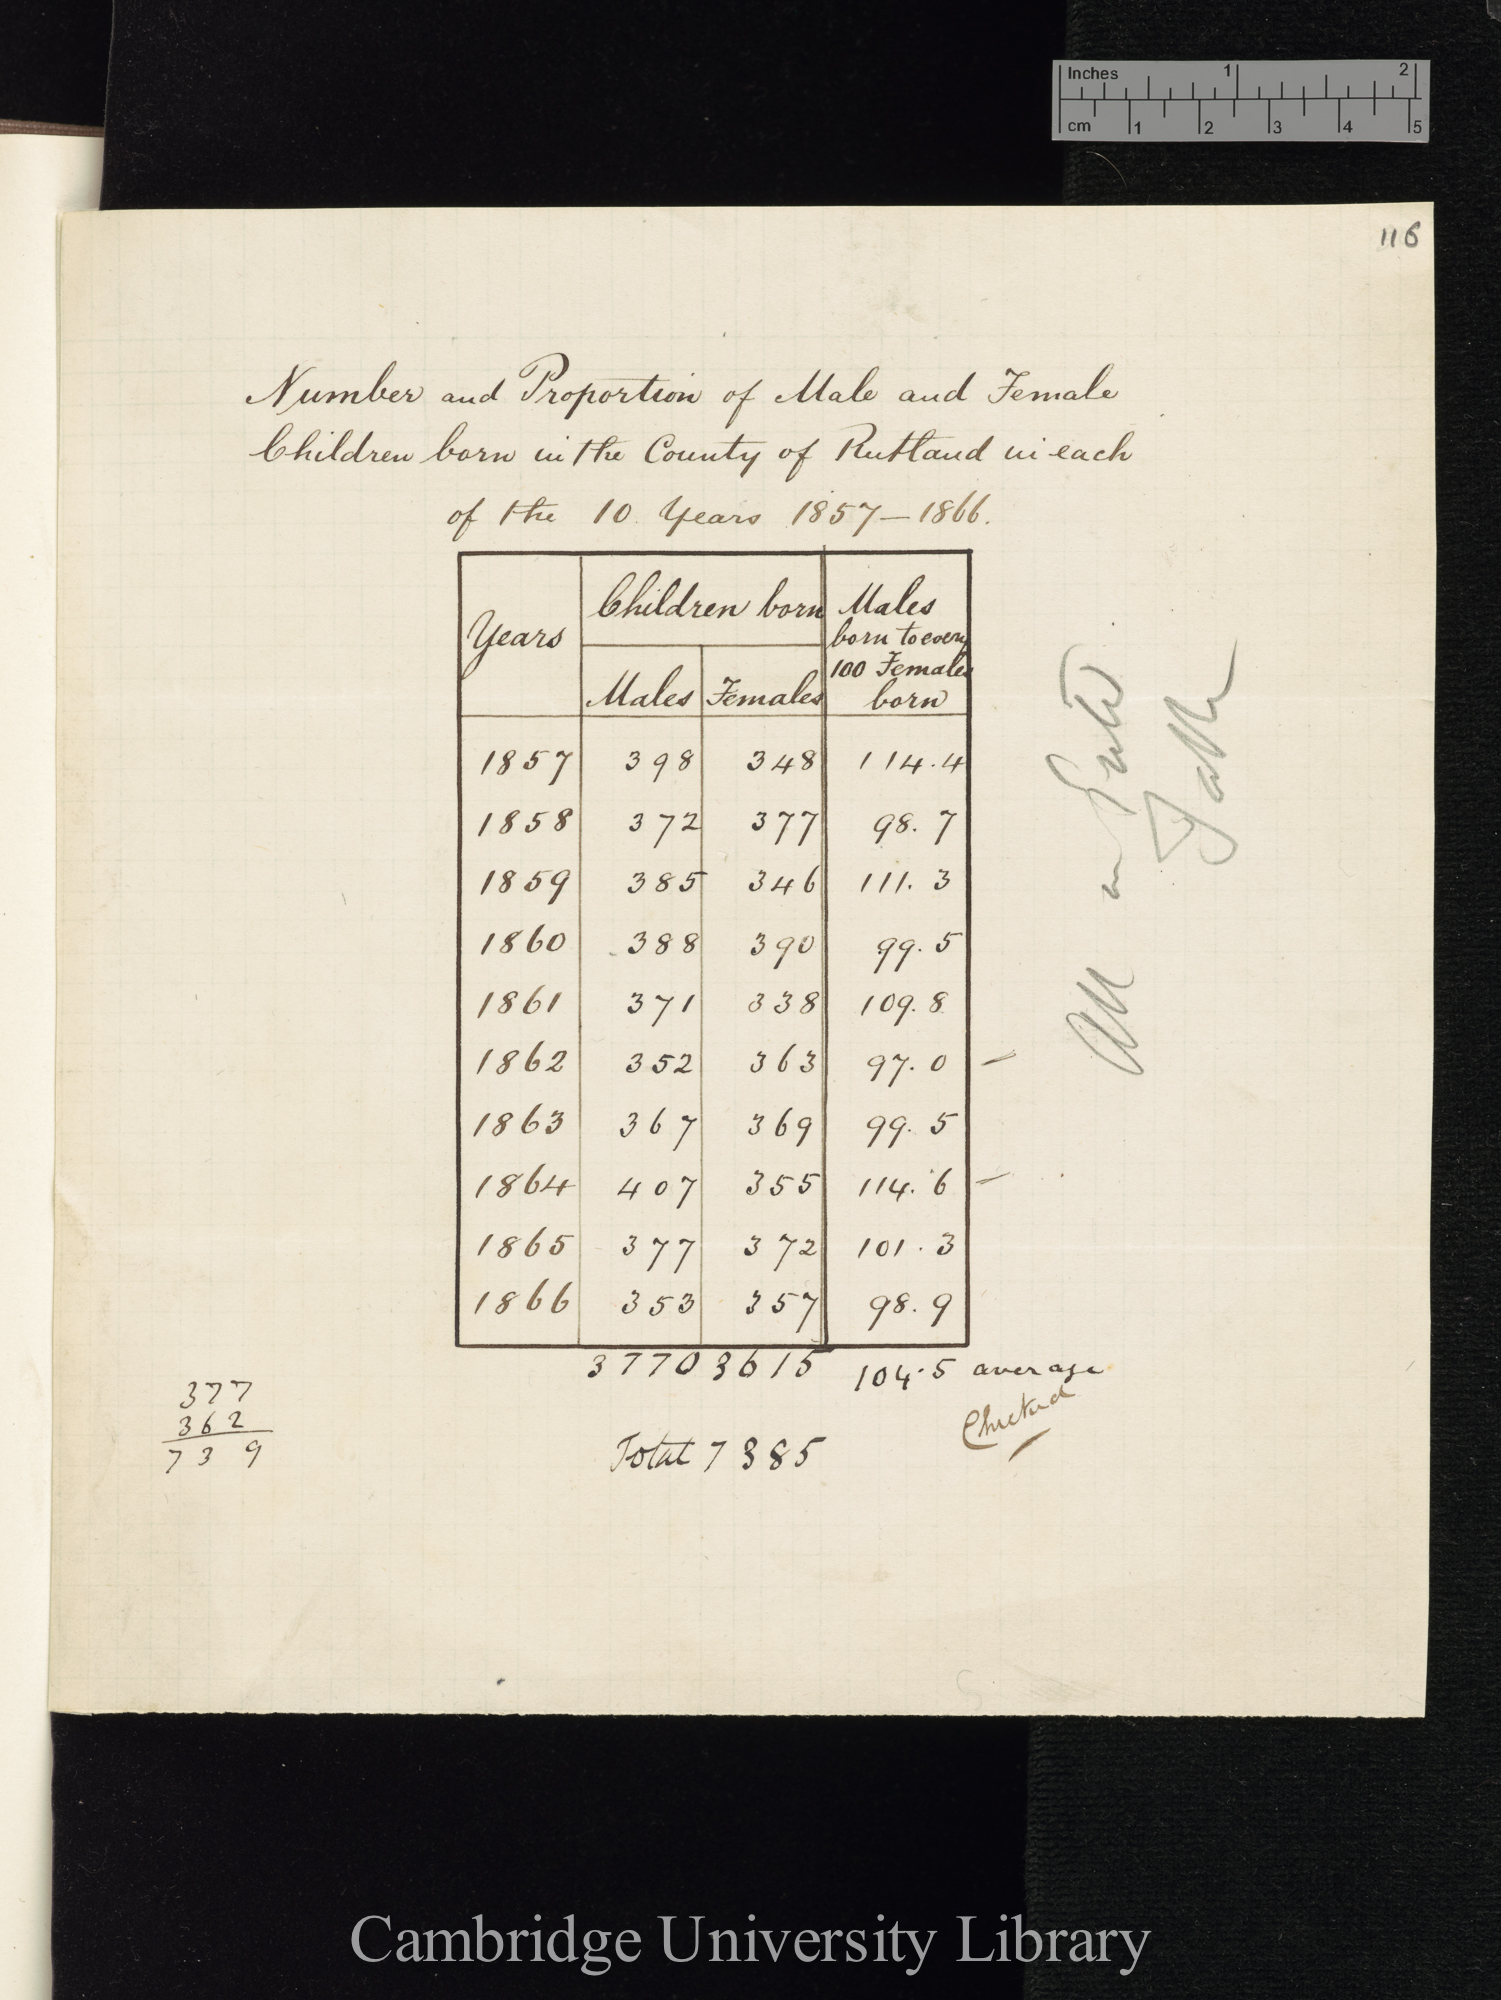 Inches 1 2
cm 1 2 3 4 5
116
Number and Proportion of Male and Female
Children born in the County of Rutland in each
of the 10 Years 1857—1866.
Years Children born Males
born to every
100 Females
born
Males Females
1857 398 348 114.4
1858 372 377 98.7
1859 385 346 111.3
1860 388 390 99.5
1861 371 338 109.8
1862 352 363 97.0 —
1863 367 369 99.5
1864 407 355 114.6 —
1865 377 372 101.3
1866 353 357 98.9
3770 3615 104.5 average
Total 7385
377
362
739
All in
Table
Cambridge University Library